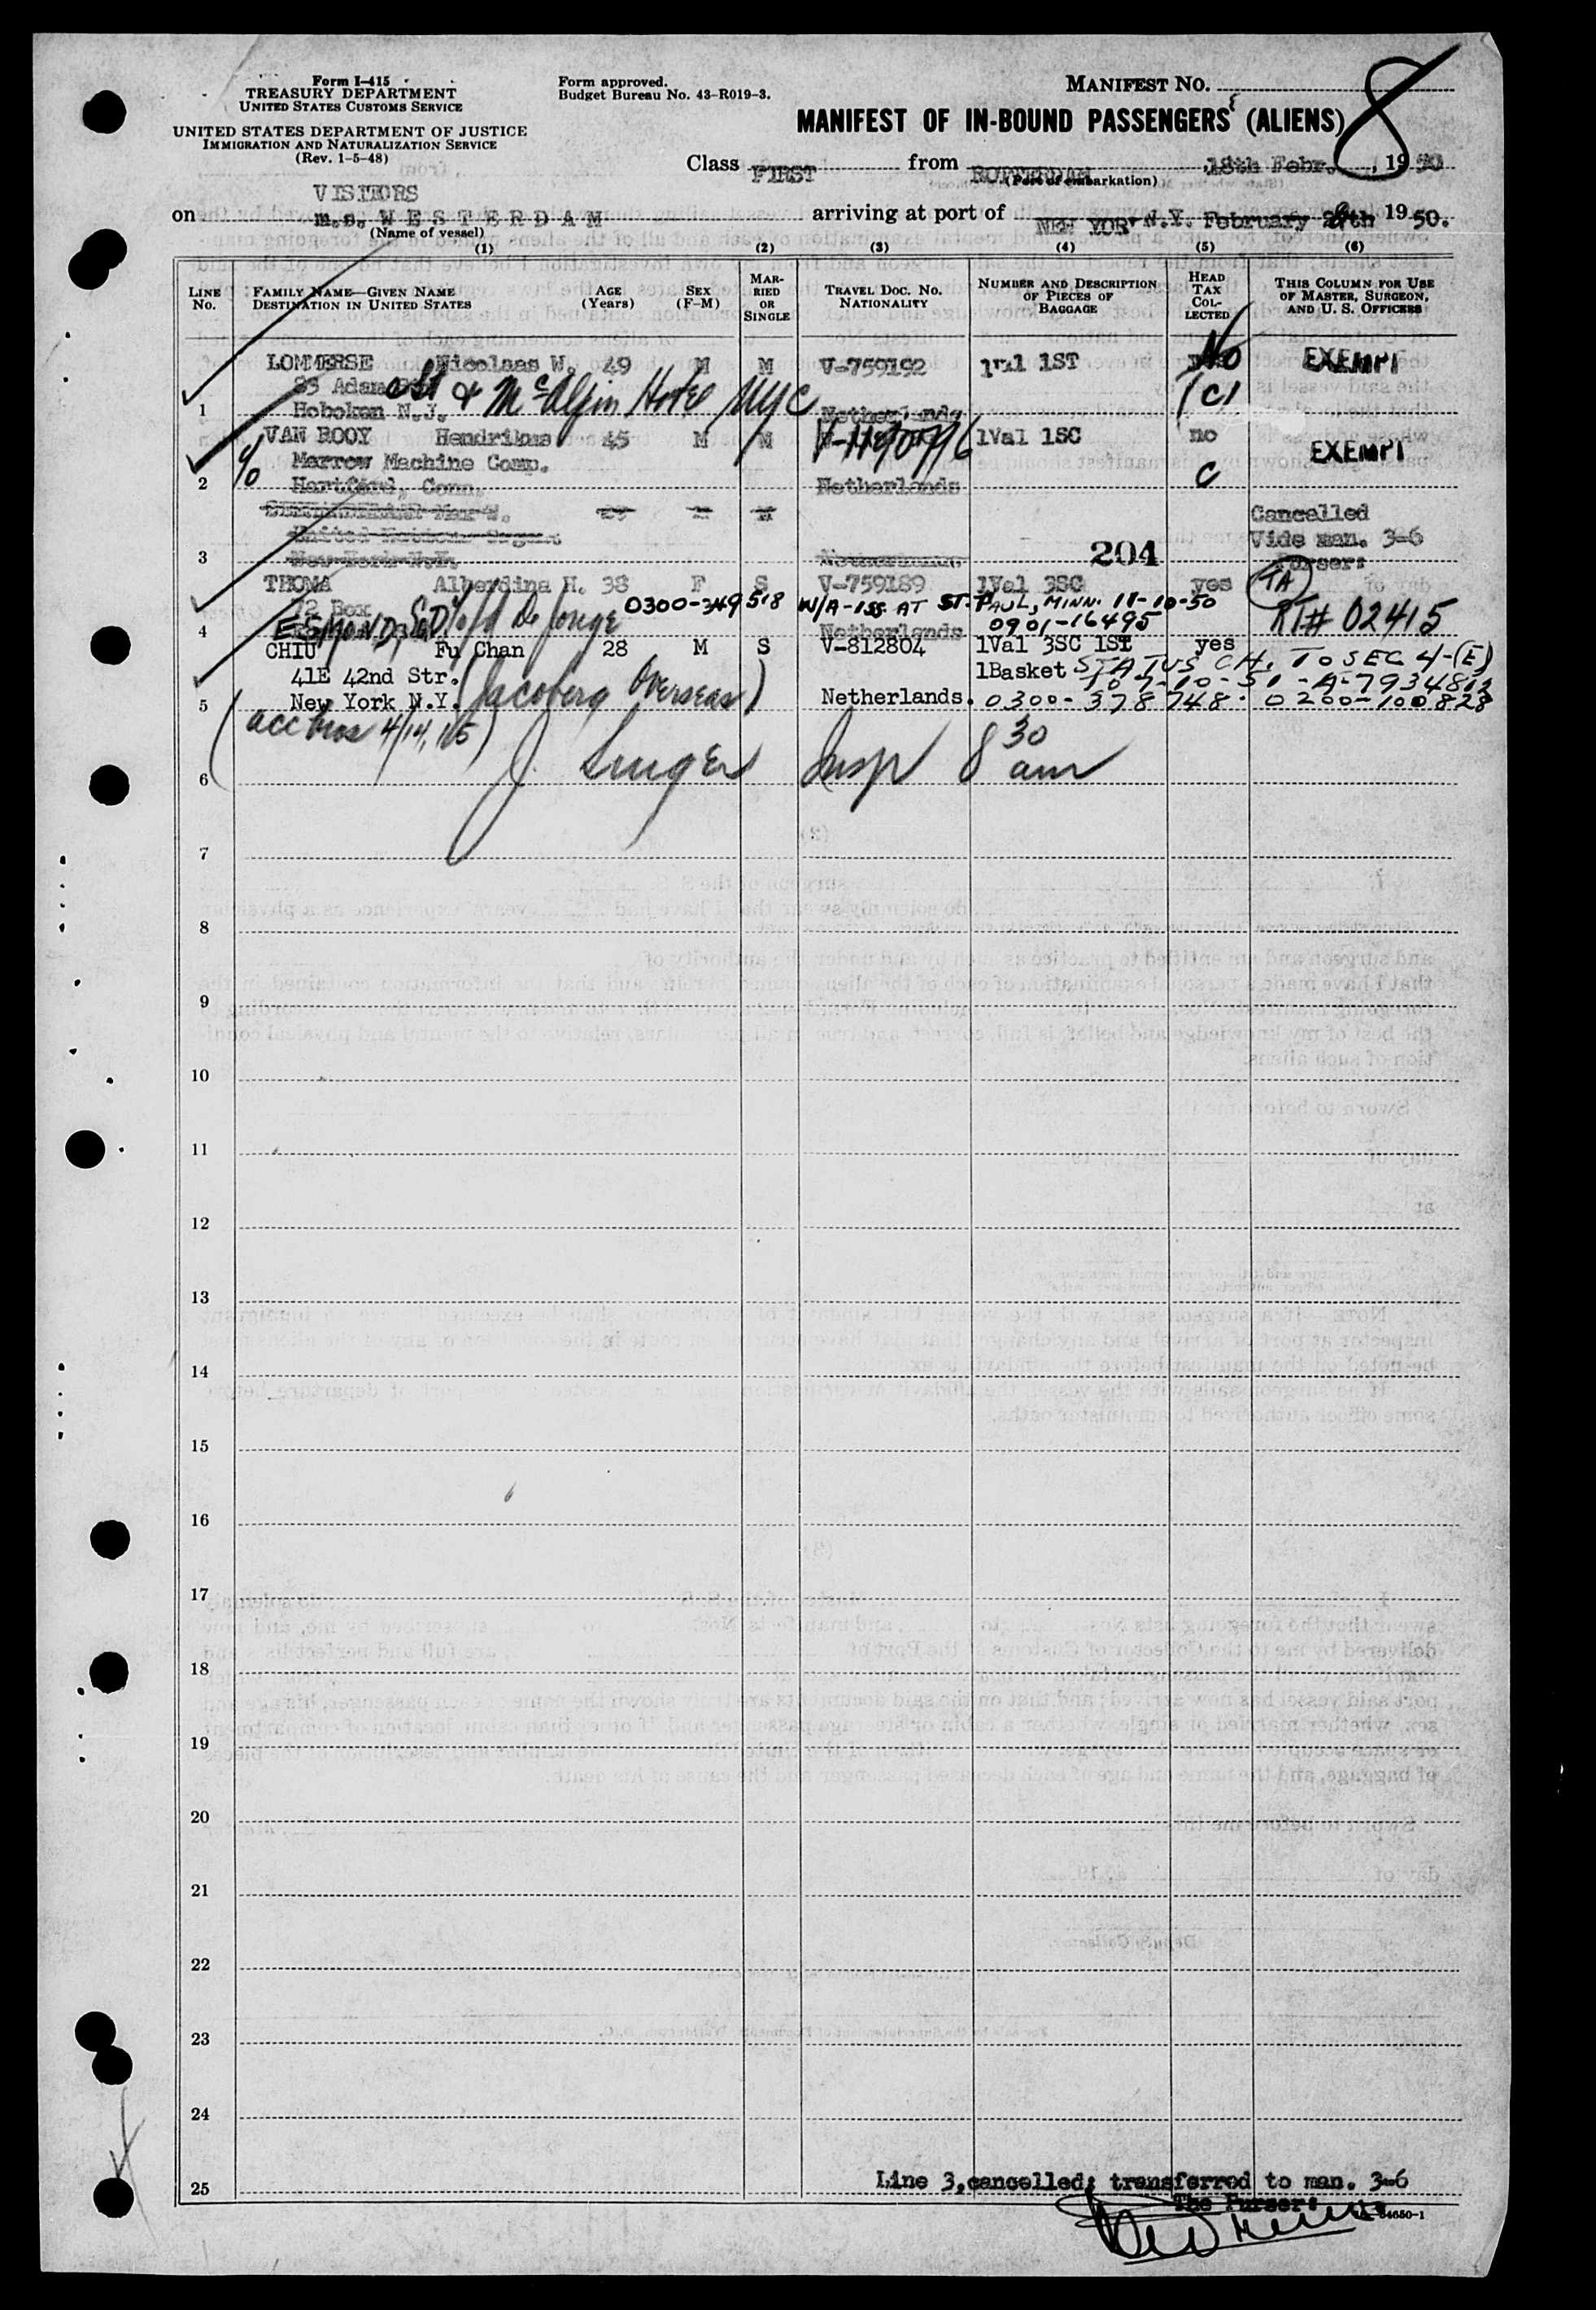 Form I-415
TREASURY DEPARTMENT
UNITED STATES CUSTOMS SERVICE
UNITED STATES DEPARTMENT OF JUSTICE
IMMIGRATION AND NATURALIZATION SERVICE
(Rev. 1-5-48)
Form approved.
Budget Bureau No. 43-R019-3.
MANIFEST NO. 8
MANIFEST OF IN-BOUND PASSENGERS (ALIENS)
Class FIRST from ROTTERDAM 18th Febr. , 1950
(Port of embarkation)
VISITORS
on m.s. WESTERDAM arriving at port of NEW YORK N.Y. February 28th 1950.
(Name of vessel)
(1) (2) (3) (4) (5) (6)
LINE No. FAMILY NAME—GIVEN NAME DESTINATION IN UNITED STATES AGE (Years) SEX (F-M) MARRIED OR SINGLE TRAVEL DOC. NO. NATIONALITY NUMBER AND DESCRIPTION OF PIECES OF BAGGAGE HEAD TAX COLLECTED THIS COLUMN FOR USE OF MASTER, SURGEON, AND U. S. OFFICERS
LOMMERSE Nicolaas W. 49 M M V-759192 1Val 1ST No EXEMPT
& McAlpin Hotel NYC
1 Hoboken N.J. Netherlands
VAN ROOY Hendrikus 45 M M 1Val 1SC no EXEMPT
c/o Marrow Machine Comp.
2 Hartford, Conn. Netherlands C
Cancelled
Vide man. 3-6
3 New York N.Y. Netherlands 204 Purser:
THOMA Alberdina H. 38 F S V-759189 1Val 3SC yes TA
72 Box 0300-349518 W/A-ISS AT ST. PAUL, MINN. 11-10-50
4 ESMOND, S.D. De Jonge Netherlands 0901-16495 RT# 02415
CHIU Fu Chan 28 M S V-812804 1Val 3SC 1ST yes
41E 42nd Str. (Jacoberg Overseas) 1Basket STATUS CH. TO SEC 4-(E)
5 New York N.Y. Netherlands. 0300-378748. 0200-100828
6 J. Singer Insp 8 30 am
7
8
9
10
11
12
13
14
15
16
17
18
19
20
21
22
23
24
Line 3, cancelled; transferred to man. 3-6
25
The Purser: